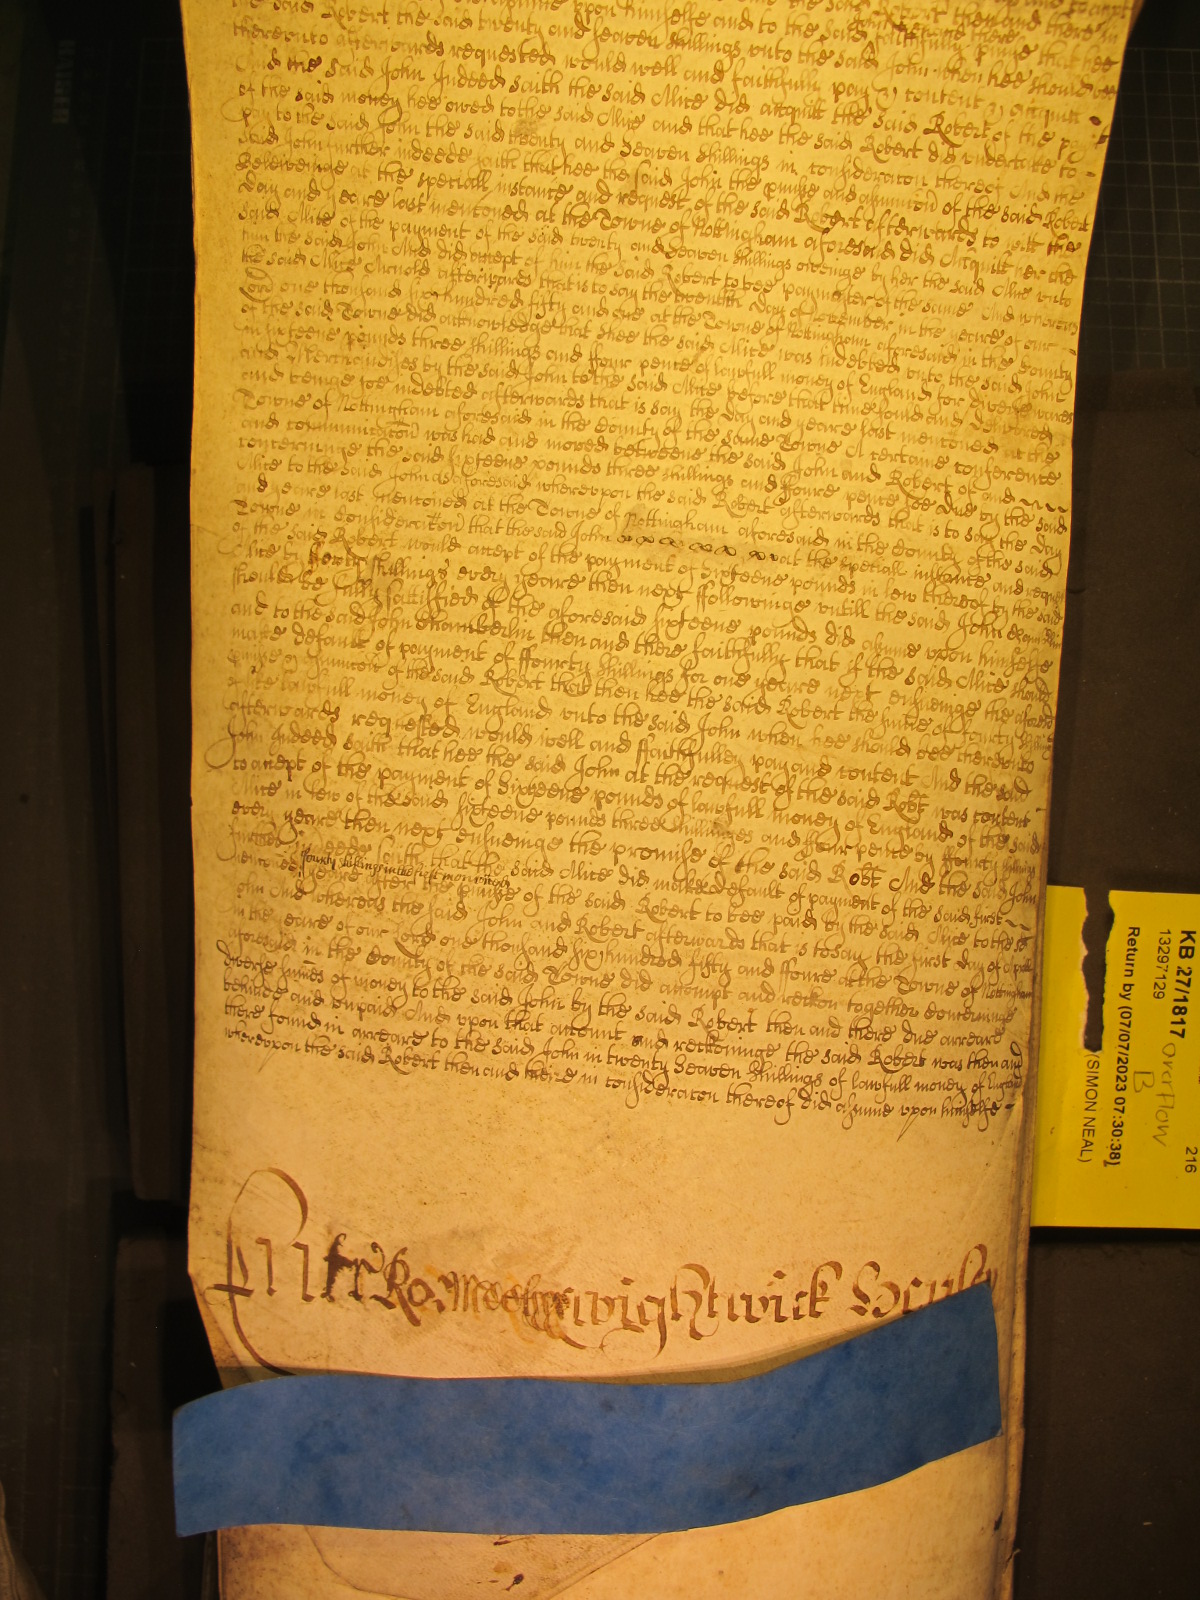 the said Robert the said twenty and seaven shillings unto the said John when hee should bee
thereunto afterwards requested would well and faithfully pay & content
And the said John Indeed saith the said Alice did acquitt the said Robert of the
of the said money hee owed to the said Alice and that hee the said Robert did undertake to
pay to the said John the said twenty and seaven shillings in consideracon thereof And the
said John further indeede saith that hee the said John the p̱mise and assumcõn of the said Robert
at the speciall instance and request of the said Robert afterwards to witt the
day and yeare last mentoned at the Towne of Nottingham aforesaid did Acquitt her the
said Alice of the payment of the said twenty and seaven shillings oweinge by her the said Alice unto
him the said John And did accept of him the said Robert to bee paymaster of the same And whereas
the said Alice Arnold afterwards that is to say the twentith day of November in the yeare of our
Lord one thousand six hundred fifty and one at the Towne of Nottingham aforesaid in the County
of the said Towne did acknowledge that shee the said Alice was indebted unto the said John
in sixteene pounds three shillings and ffour pence of lawfull money of England for divers wares
and Merchandizes by the said John to the said Alice before that time sould and delivered
and beinge soe indebted afterwards that is to say the day and yeare last mentoned at the
Towne of Nottingham aforesaid in the County of the same Towne A certaine conference
and communicacõn was had and moved betweene the said John and Robert of and
concerninge the said sixteene pounds three shillings and ffoure pence soe due by the said
Alice to the said John as aforesaid whereupon the said Robert afterwards that is to say the day
and yeare last mentoned at the Towne of Nottingham aforesaid in the County of the said
Towne in consideracõn that the said John at the speciall instance and request
of the said Robert would accept of the payment of sixteene pounds in lew thereof by the said
Alice by fforty shillings every yeare then next ffollowinge untill the said John Chamberlin
should be fully sattisfied of the aforesaid sixteene pounds did assume upon himselfe
and to the said John Chamberlin then and there faithfully that if the said Alice should
make default of payment of ffourty shillings for one yeare next ensueinge the aforesaid
p̱mise & assumcõn of the said Robert that then hee the said Robert the sume of fourty shillings
of like lawfull money of England unto the said John when hee should bee thereunto
afterwards requested would well and ffaithfulley pay and content And the said
John Indeed saith that hee the said John at the request of the said Robt was content
to accept of the payment of sixteene pounds of lawfull money of England of the said
Alice in lew of the said sixteene pounds three shillinges and ffour pence by ffourty shillings
every yeare then next ensueinge the promise of the said Robt And the said John
further in deede saith that the said Alice did make default of payment of the said first
mentoned fourty shillings in the first mentoned yeare after the p̱mise of the said Robert to bee paid by the said Alice to the sd
John And whereas the said John and Robert afterwards that is to say the first day of Aprill
in the yeare of our Lord one thousand six hundred fifty and ffoure at the Towne of Nottingham
aforesaid in the County of the said Towne did accompt and reckon together concerninge
diverse sumes of money to the said John by the said Robert then and there due arreare
behinde and unpaid And upon that accompt and reckoninge the said Robert was then and
there found in arreare to the said John in twenty seaven shillings of lawfull money of England
whereupon the said Robert then and there in consideracon thereof did assume upon himselfe
Wightwick
KB 27/1817
13297129
Return by (07/07/2023 07:30:38)
(SIMON NEAL)
216
Overflow
B